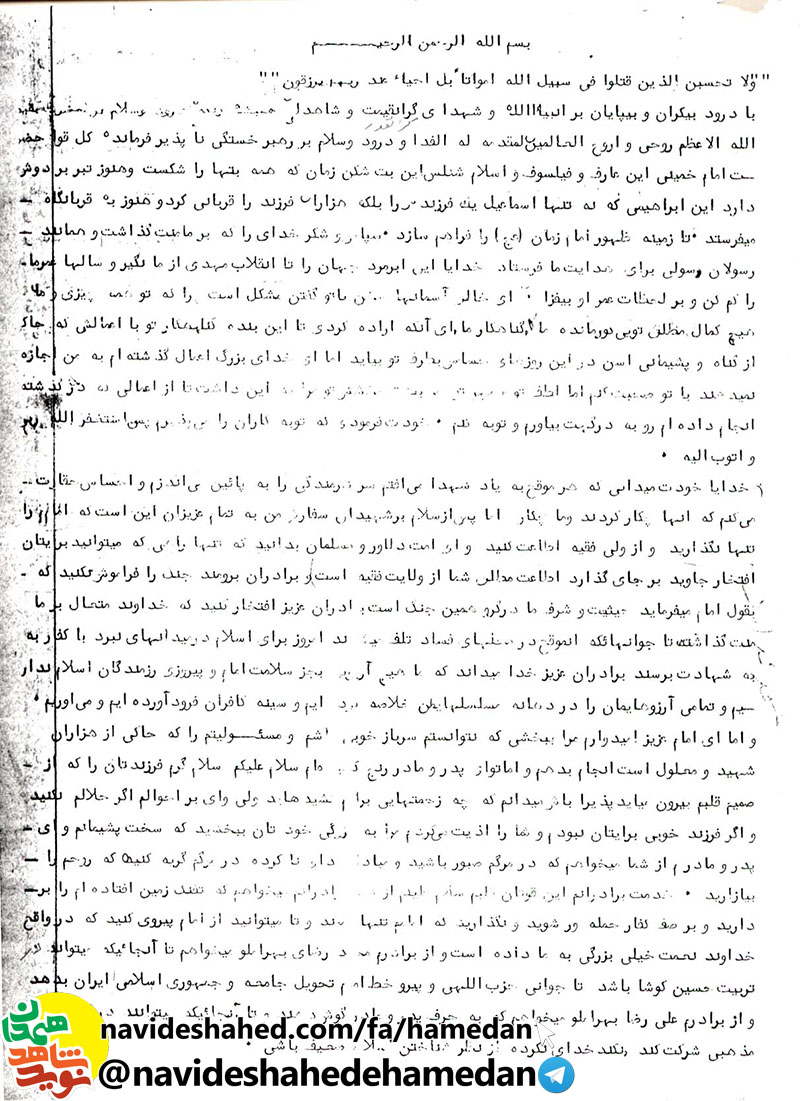 بسم الله الرحمن الرحیــــــم
"ولا تحسبن الذین قتلوا فی سبیل الله امواتا بل احیاء عند ربهم یرزقون"
با درود بیکران و بیپایان بر انبیاءالله و شهدای گرانقیمت و شاهدان همیشه زنده درود وسلام بر
الله الاعظم روحی و ارواح العالمین لمقدمه له الفدا و درود وسلام بر رهبر خستگی نا پذیر فرمانده کل قوا حضر
ـت امام خمینی این عارف و فیلسوف و اسلام شناس این بت شکن زمان که همه بتها را شکست وهنوز تبر بر دوش
دارد این ابراهیمی که نه تنها اسماعیل یک فرزندش را بلکه هزاران فرزند را قربانی کرد و هنوز به قربانگاه ـ
میفرستد تا زمینه ظهور امام زمان (عج) را فراهم سازد سپاس و شکر خدای را که بر ما منت گذاشت و همانند ـ
رسولان رسولی برای هدایت ما فرستاد خدایا این ابرمرد جهان را تا انقلاب مهدی از ما نگیر و سالها عمرما
را کم کن و بر لحظات عمر او بیفزا ای خالق آسمانها سخن با تو گفتن مشکل است را که تو همه چیزی و ما
هیچ کمال مطلق تویی و درمانده ما گناهکار ما، ای آنکه اراده کردی تا این بنده گناهکار تو با اعمالش که حاکی
از گناه و پشیمانی است در این روزهای حساس بطرف تو بیاید اما ای خدای بزرگ اعمال گذشته ام به من اجازه
نمیدهند با تو صحبت کنم اما لطف تو مرا به این داشت تا از اعمالی که در گذشته
انجام داده ام رو به درگهت بیاورم و توبه کنم خودت فرمودی که توبه کاران را می پذیرم پس استغفر الله ربی
و اتوب الیه
خدایا خودت میدانی که هر موقع به یاد شهدا می افتم سر شرمندگی را به پائین می اندازم و احساس حقارت ـ
می کنم که آنها چکار کردند وما چکار اما پس از سلام بر شهیدان سفارش من به تمام عزیزان این است که امام را
تنها نگذارید و از ولی فقیه اطاعت کنید و ای امت دلاور و مسلمان بدانید که تنها راهی که میتوانید برایتان
افتخار جاوید بر جای گذارد اطاعت مطلق شما از ولایت فقیه است و برادران برومند جنگ را فراموش نکنید که ـ
بقول امام میفرماید حیثیت و شرف ما در گرو همین جنگ است برادران عزیز افتخار کنید که خداوند متعال بر ما
منت گذاشته تا جوانهائیکه آنموقع در محلهای فساد تلف میشدند امروز برای اسلام در میدانهای نبرد با کفار به
به شهادت برسند برادران عزیز خدا میداند که ما هیچ آرزویی بجز سلامت امام و پیروزی رزمندگان اسلام ندار
ـیم و تمامی آرزوهایمان را در دهانه مسلسلهایمان خلاصه کرده ایم و سینه کافران فرود آورده ایم و می اوریم
و اما ای امام عزیز امیدوارم مرا ببخشی که نتوانستم سرباز خوبی باشم و مسئـــولیتم را که حاکی از هزاران
شهید و معلول است انجام بدهم و اما تو ای پدر و مادر رنج کشیده ام سلام علیکم سلام گرم فرزندتان را که از ـ
صمیم قلبم بیرون میاید پذیرا باش میدانم که چه زحمتهایی برایم کشیده اید ولی وای بر احوالم اگر حلالم نکنید
و اگر فرزند خوبی برایتان نبودم و شما را اذیت می کردم مرا به بزرگی خود تان ببخشید که سخت پشیمانم و ای ـ
پدر و مادرم از شما میخواهم که در مرگم صبور باشید و مبادا نا کرده در مرگم گریه کنید که روحم را ـ
بیازارید خدمت برادرانم این قوتان قلبم سلام از برادرانم میخواهم که تفنگ زمین افتاده ام را بر ـ
دارید و بر صف کفار حمله ور شوید و نگذارید که امام تنها بماند و تا میتوانید از امام پیروی کنید که در واقع
خداوند نعمت خیلی بزرگی به ما داده است و از برادرم محمد رضای بهراملو میخواهم تا آنجائیکه میتواند در
تربیت حسین کوشا باشد تا جوانی حزب اللهی و پیرو خط امام تحویل جامعه و جمهوری اسلامی ایران بدهد
و از برادرم علی رضا بهراملو میخواهم که به حرف پدر و مادر گوش دهد و تا آنجائیکه میتواند در
مذهبی شرکت کند نکند خدای نکرده از نظر شناختن اسلام ضعیف باشی
نوید شاهد همدان
navideshahed.com/fa/hamedan
@navideshahedehamedan